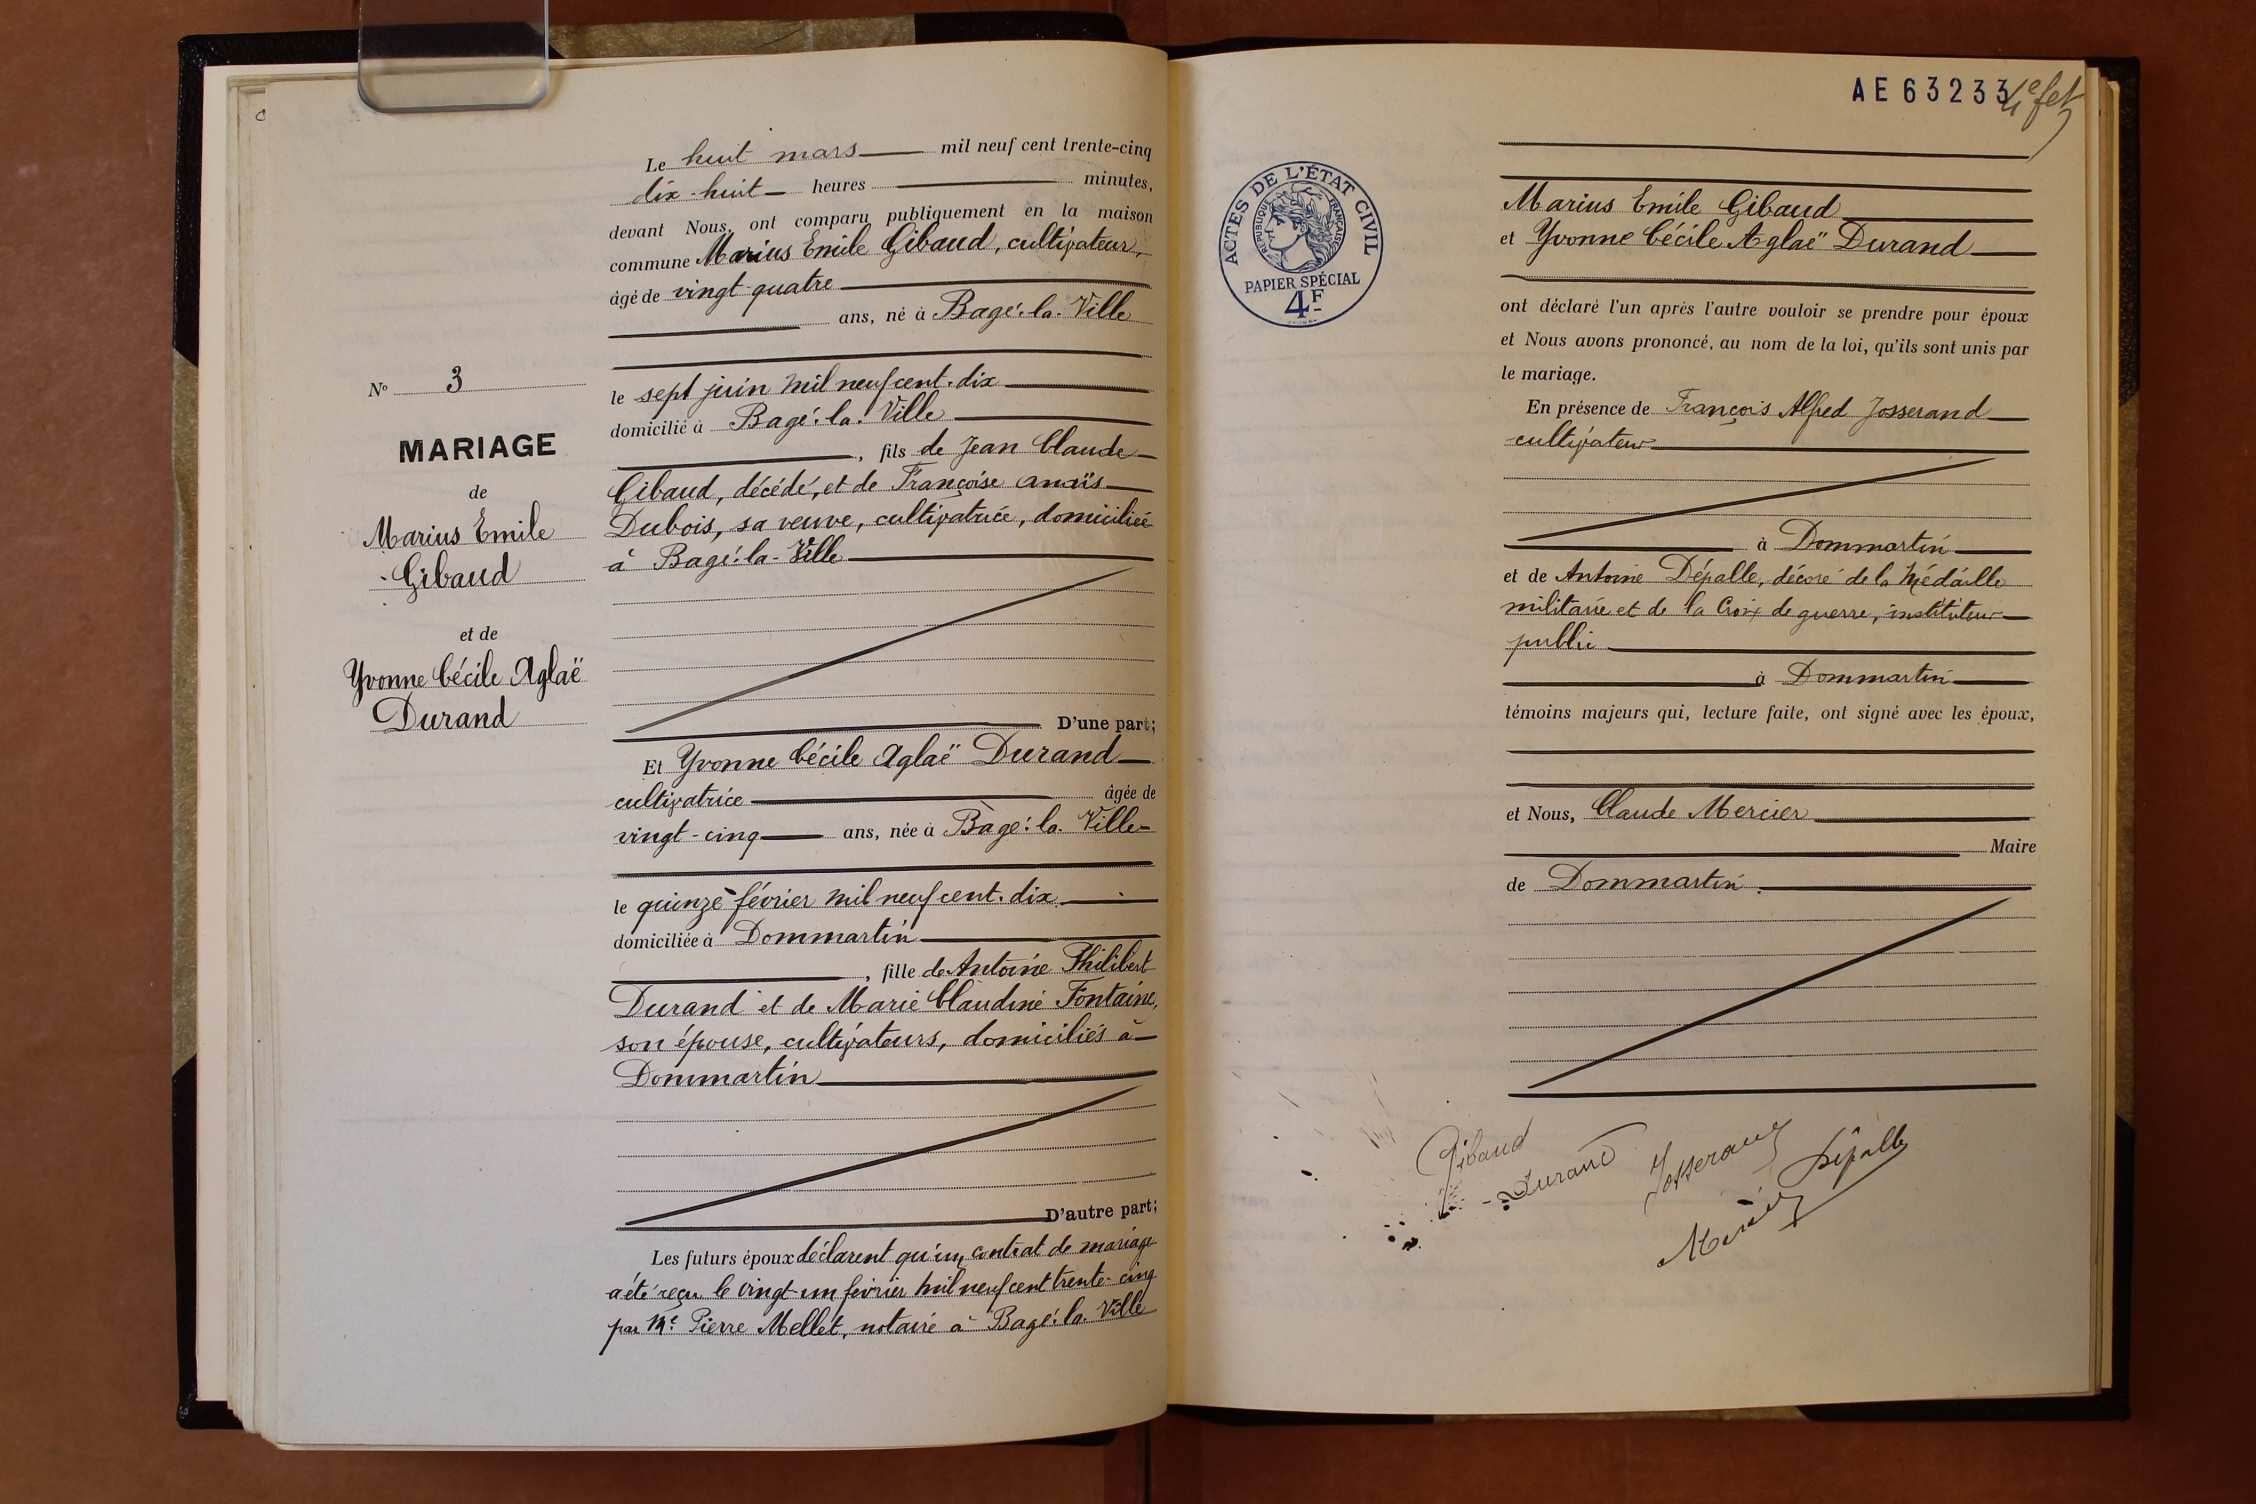 Le huit mars mil neuf cent trente-cinq
dix-huit heures minutes,
devant Nous, ont comparu publiquement en la maison
commune Marius Emile Gibaud, cultivateur,
âgé de vingt-quatre
ans, né à Bagé-la-Ville
le sept juin mil neuf cent dix
domicilié à Bagé-la-Ville
, fils de Jean Claude
Gibaud, décédé, et de Françoise Anaïs
Dubois, sa veuve, cultivatrice, domiciliée
à Bagé-la-Ville
D'une part;
Et Yvonne Cécile Aglaë Durand
cultivatrice âgée de
vingt-cinq ans, née à Bagé-la-Ville
le quinze février mil neuf cent dix
domiciliée à Dommartin
, fille de Antoine Philibert
Durand et de Marie Claudine Fontaine,
son épouse, cultivateurs, domiciliés à
Dommartin
D'autre part;
Les futurs époux déclarent qu'un contrat de mariage
a été reçu le vingt-un février mil neuf cent trente-cinq
par Me Pierre Mellet, notaire à Bagé-la-Ville
No 3
MARIAGE
de
Marius Emile
Gibaud
et de
Yvonne Cécile Aglaë
Durand
AE 63233
4e fet
ACTES DE L'ÉTAT CIVIL
RÉPUBLIQUE FRANÇAISE
PAPIER SPÉCIAL
4F
Marius Emile Gibaud
et Yvonne Cécile Aglaë Durand
ont déclaré l'un après l'autre vouloir se prendre pour époux
et Nous avons prononcé, au nom de la loi, qu'ils sont unis par
le mariage.
En présence de François Alfred Josserand
cultivateur
à Dommartin
et de Antoine Dépalle, décoré de la Médaille
militaire et de la Croix de guerre, instituteur
public
à Dommartin
témoins majeurs qui, lecture faite, ont signé avec les époux,
et Nous, Claude Mercier
Maire
de Dommartin.
Gibaud
Durand
Josserand
Dépalle
Mercier